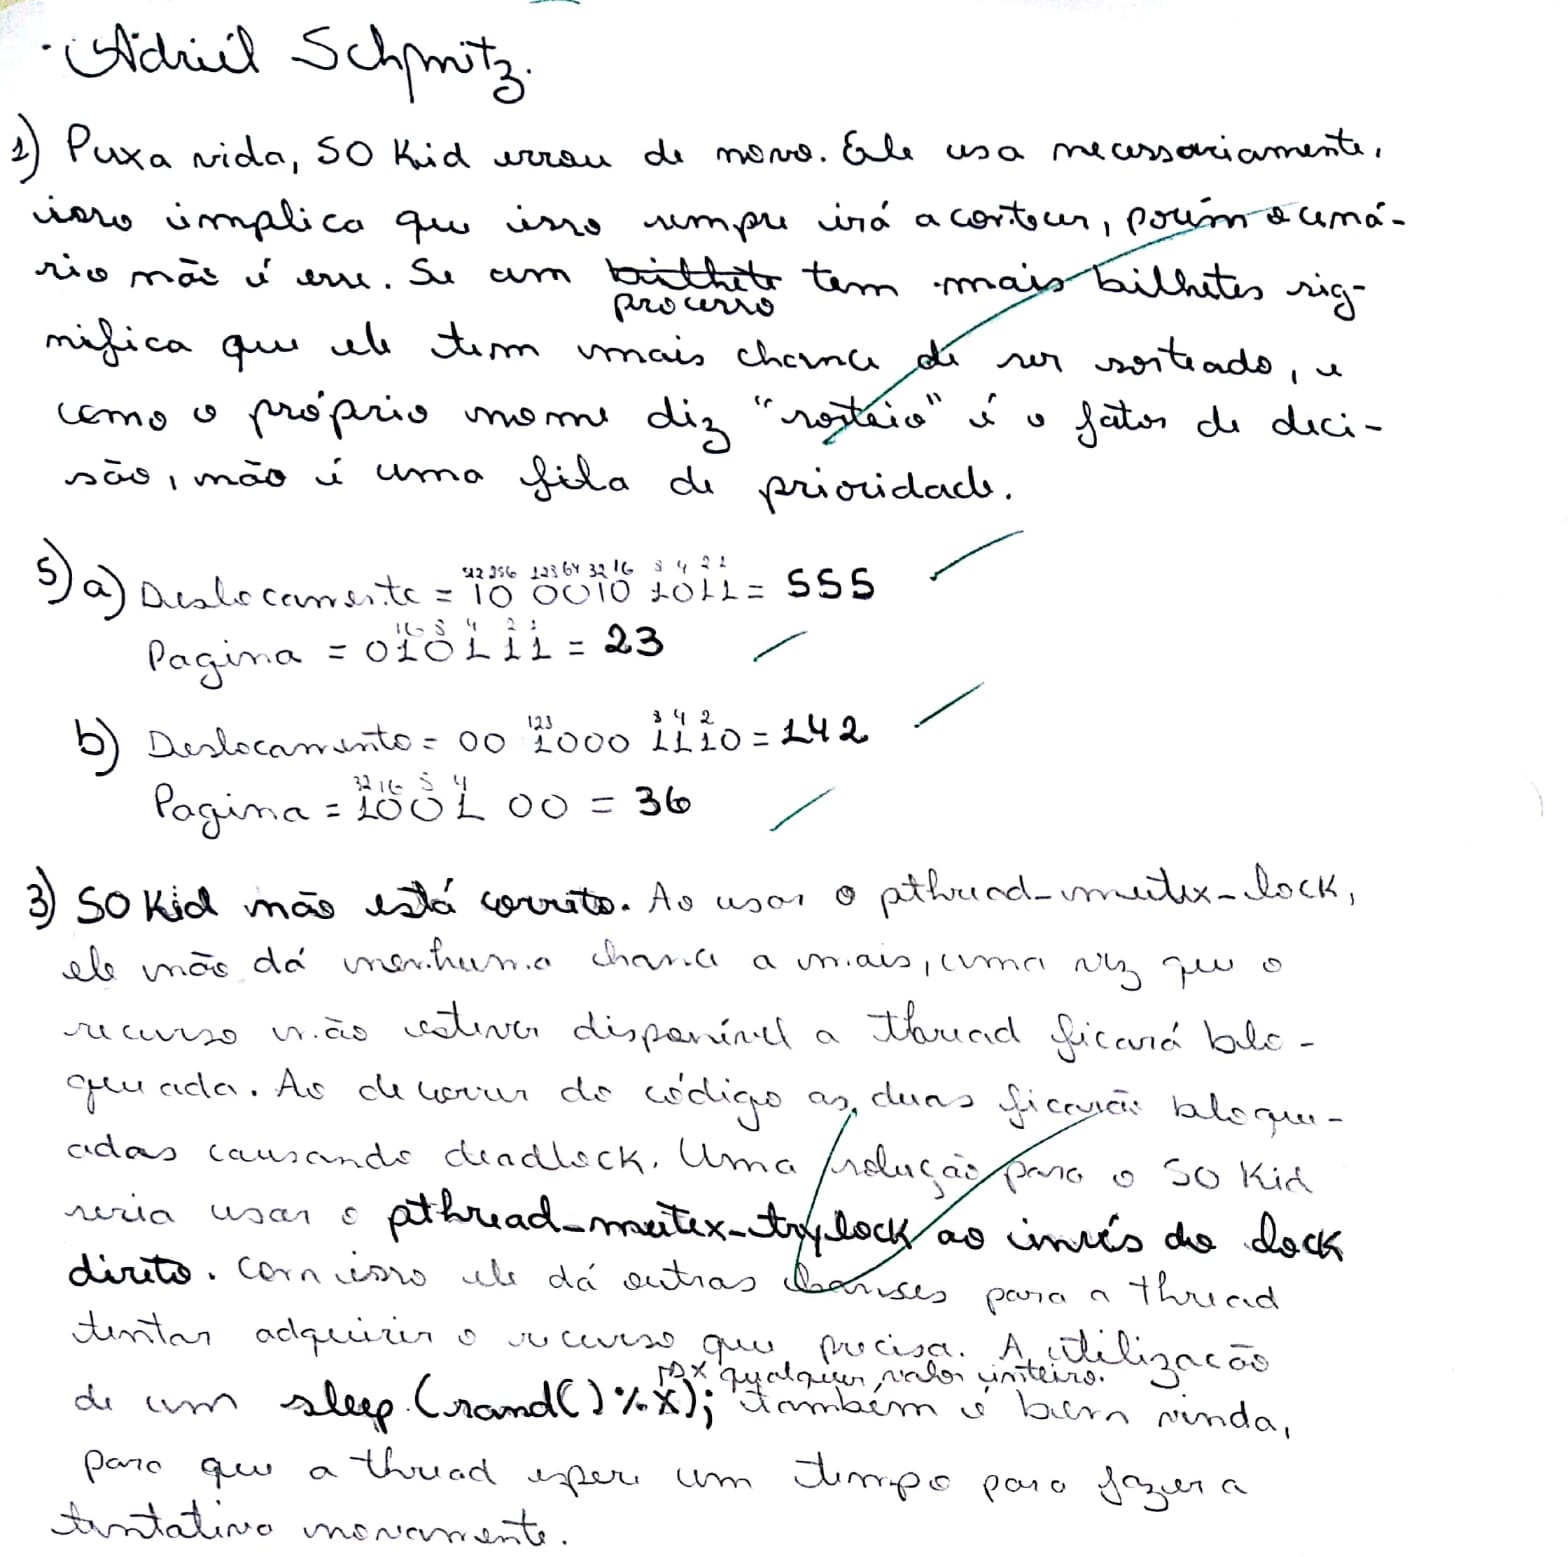 Adriél Schmitz.
1) Puxa vida, SO Kid errou de novo. Ele usa necessariamente,
isso implica que isso sempre irá acontecer, porém o cená-
rio não é esse. Se um bilhete tem mais bilhetes sig-
processo
nifica que ele tem mais chance de ser sorteado, e
como o próprio nome diz "sorteio" é o fator de deci-
são, não é uma fila de prioridade.
512 256 128 64 32 16 8 4 2 1
5) a) Deslocamento = 10 0010 1011 = 555
16 8 4 2 1
Pagina = 010111 = 23
128 8 4 2
b) Deslocamento = 00 1000 1110 = 142
32 16 8 4
Pagina = 1001 00 = 36
3) SO Kid não está correto. Ao usar o pthread_mutex_lock,
ele não dá nenhuma chance a mais, uma vez que o
recurso não estiver disponível a thread ficará blo-
queada. Ao decorrer do código as duas ficarão bloque-
adas causando deadlock. Uma solução para o SO Kid
seria usar o pthread_mutex_trylock ao invés do lock
direto. Com isso ele dá outras chanses para a thread
tentar adquirir o recurso que precisa. A utilização
X qualquer valor inteiro.
de um sleep(rand()%X); também é bem vinda,
para que a thread espere um tempo para fazer a
tentativa novamente.